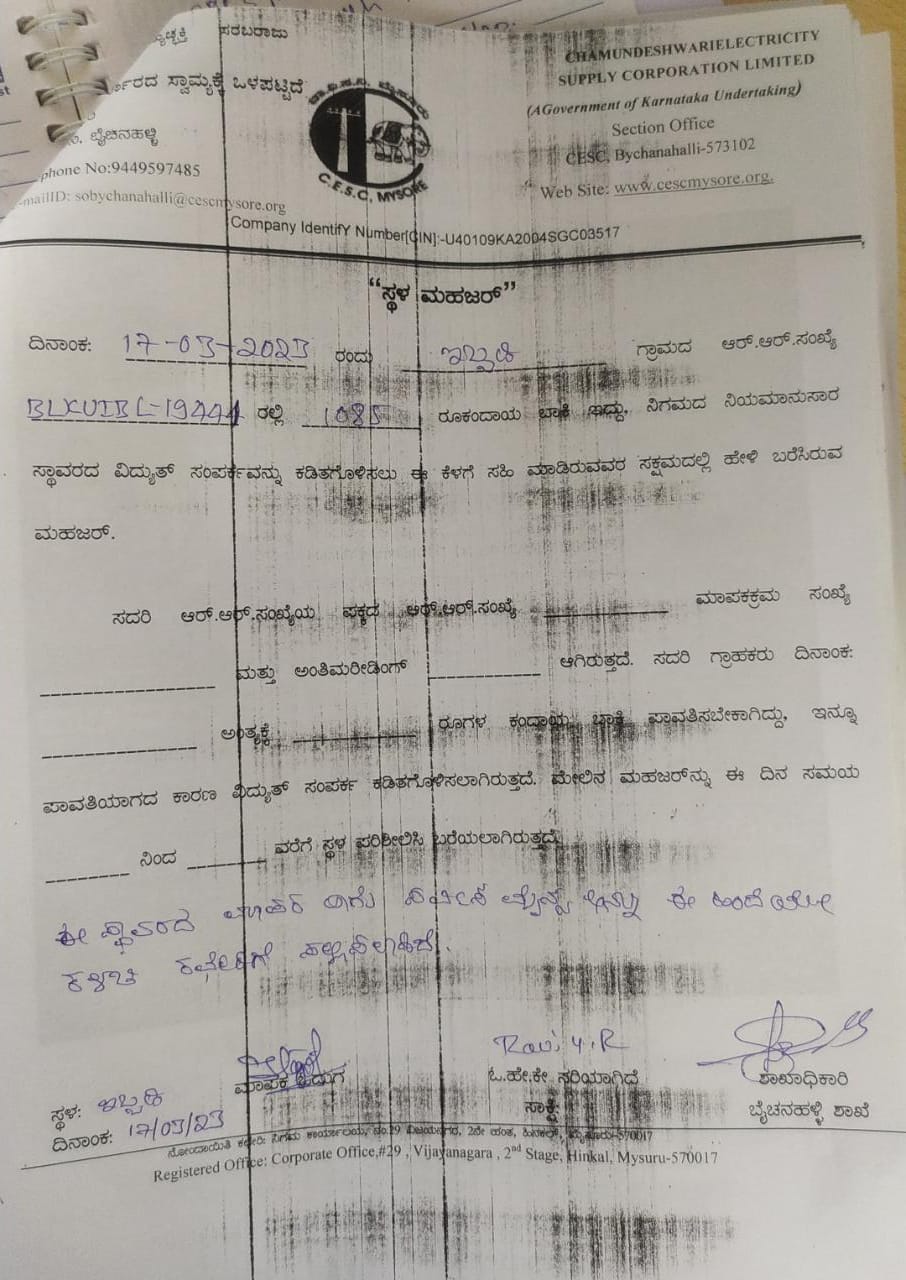 ಸರಬರಾಜು
ಸ್ವಾಮ್ಯಕ್ಕೆ ಒಳಪಟ್ಟಿದೆ
ಬೈಚನಹಳ್ಳಿ
phone No:9449597485
-mailID: sobychanahalli@cescmysore.org
C.E.S.C, MYSORE
CHAMUNDESHWARIELECTRICITY
SUPPLY CORPORATION LIMITED
(AGovernment of Karnataka Undertaking)
Section Office
CESC, Bychanahalli-573102
Web Site: www.cescmysore.org.
Company IdentifY Number[CIN]:-U40109KA2004SGC03517
“ಸ್ಥಳ ಮಹಜರ್”
ದಿನಾಂಕ: 17-03-2023 ರಂದು ಇಬ್ಬಡಿ ಗ್ರಾಮದ ಆರ್.ಆರ್.ಸಂಖ್ಯೆ
ರಲ್ಲಿ 1085 ರೂಕಂದಾಯ ಬಾಕಿ ಇದ್ದು, ನಿಗಮದ ನಿಯಮಾನುಸಾರ
ಸ್ಥಾವರದ ವಿದ್ಯುತ್ ಸಂಪರ್ಕವನ್ನು ಕಡಿತಗೊಳಿಸಲು ಈ ಕೆಳಗೆ ಸಹಿ ಮಾಡಿರುವವರ ಸಕ್ಷಮದಲ್ಲಿ ಹೇಳಿ ಬರೆಸಿರುವ
ಮಹಜರ್.
ಸದರಿ ಆರ್.ಆರ್.ಸಂಖ್ಯೆಯ ಪಕ್ಕದ ಆರ್.ಆರ್.ಸಂಖ್ಯೆ ಮಾಪಕಕ್ರಮ ಸಂಖ್ಯೆ
ಮತ್ತು ಅಂತಿಮರೀಡಿಂಗ್ ಆಗಿರುತ್ತದೆ. ಸದರಿ ಗ್ರಾಹಕರು ದಿನಾಂಕ:
ಅಂತ್ಯಕ್ಕೆ ರೂಗಳ ಕಂದಾಯ ಬಾಕಿ ಪಾವತಿಸಬೇಕಾಗಿದ್ದು, ಇನ್ನೂ
ಪಾವತಿಯಾಗದ ಕಾರಣ ವಿದ್ಯುತ್ ಸಂಪರ್ಕ ಕಡಿತಗೊಳಿಸಲಾಗಿರುತ್ತದೆ. ಮೇಲಿನ ಮಹಜರ್‌ನ್ನು ಈ ದಿನ ಸಮಯ
ನಿಂದ ವರೆಗೆ ಸ್ಥಳ ಪರಿಶೀಲಿಸಿ ಬರೆಯಲಾಗಿರುತ್ತದೆ
ಈ ಸ್ಥಾವರದ ಈ ಹಿಂದೆಯೇ
Ravi Y.R
ಮಾಪಕ ಓದುಗ ಓ.ಹೇ.ಕೇ ಸರಿಯಾಗಿದೆ ಶಾಖಾಧಿಕಾರಿ
ಸ್ಥಳ: ಇಬ್ಬಡಿ ಸಾಕ್ಷಿ: ಬೈಚನಹಳ್ಳಿ ಶಾಖೆ
ದಿನಾಂಕ: 17/03/23
Registered Office: Corporate Office,#29 , Vijayanagara , 2nd Stage, Hinkal, Mysuru-570017